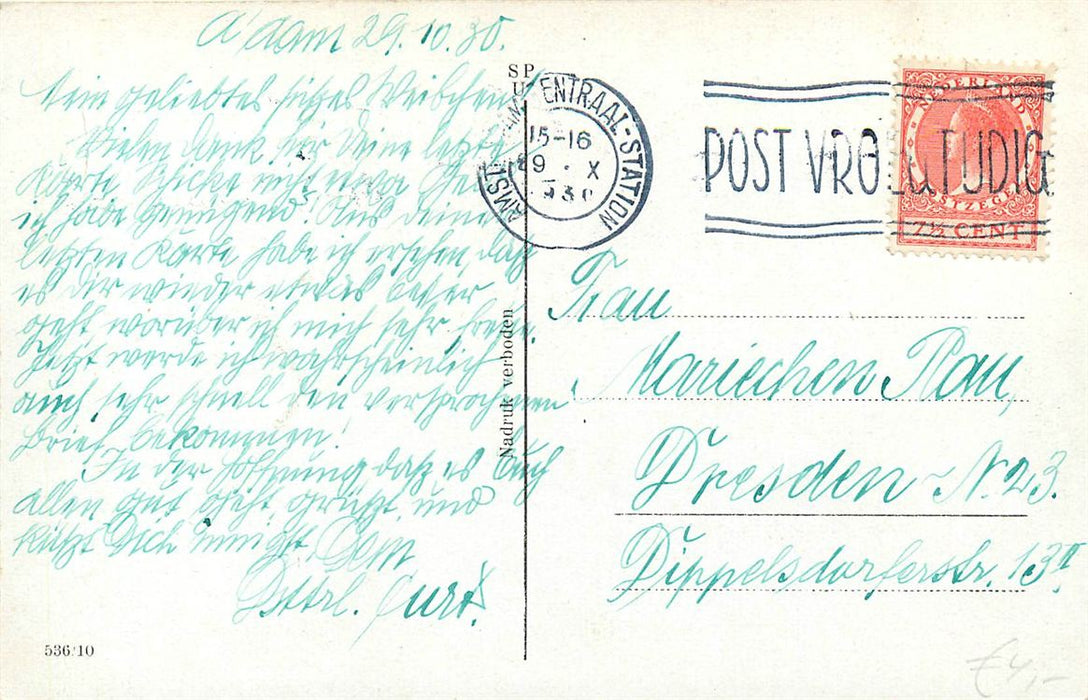 A'dam 29.10.30.
Mein geliebtes süsses Weibchen!
Vielen Dank für Deine letzte
Karte. Schicke nicht etwa Geld
ich habe genügend! Aus Deiner
letzten Karte habe ich ersehen, daß
es Dir wieder etwas besser
geht worüber ich mich sehr freue.
Jetzt werde ich wahrscheinlich
auch sehr schnell den versprochenen
Brief bekommen!
In der Hoffnung, daß es Euch
allen gut geht grüßt und
küßt Dich innigst Dein
Curt.
536/10
SP
U
Nadruk verboden
AMST. CENTRAAL-STATION
15-16
29 X
1930
POST VROEGTIJDIG
NEDERLAND
POSTZEGEL
7½ CENT
Frau
Mariechen Rau,
Dresden-N.23.
Dippelsdorferstr. 13 II
€4,-